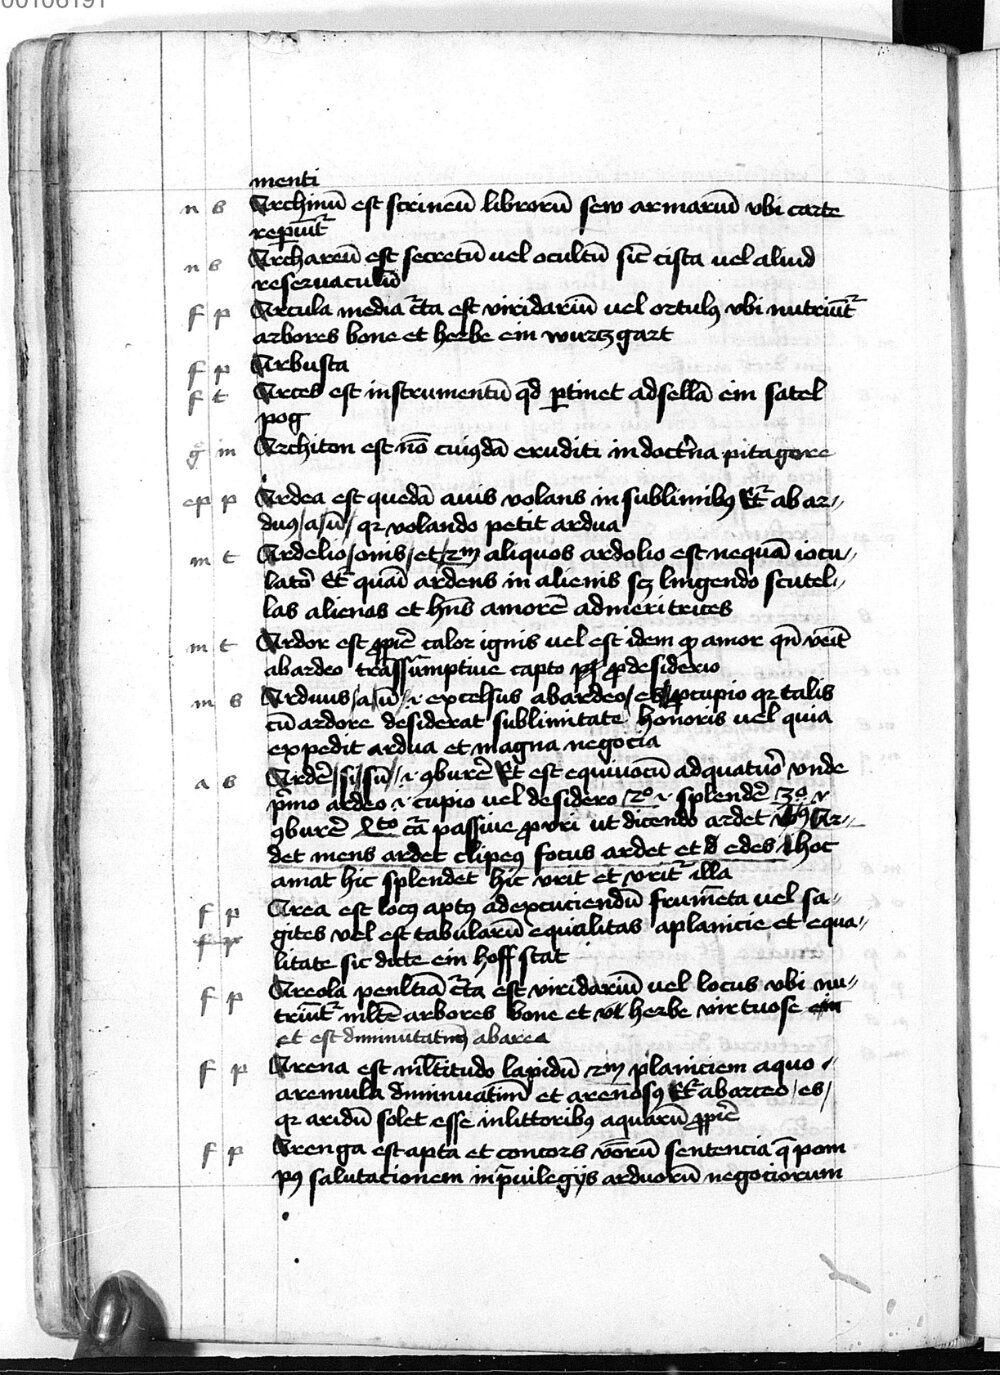 00106191
menti
n b Archinū est scrineū librorū sew armariū vbi carte
reperiūt̄
n b Archareū est secretū uel ocultū sic̄ cista uel aliud
reseruaculū
f p Arcula media c̄ta est viridariū uel ortulꝯ vbi nutriūt̄
arbores bone et herbe ein wurczgart
f p Arbusta
f t Arces est instrumentū qd̄ ꝑtinet ad sellā ein satel
pog
g m Architon est nō cuiꝯdā eruditi in doct̄na pitagore
ep p Ardea est quedā auis volans in sublimibꝯ Et̄ ab ar//
duꝯ/a/ū/ qꝛ volando petit ardua
m t Ardelio/onis/ et/ ꝛm aliquos ardolio est nequā iocu//
latoꝛ̄ Et̄ quasī ardens in alienis sꝫ lingendo scutel//
las alienas et hn̄s amorē ad meritrices
m t Ardor est ꝓpꝛīe calor ignis uel est idem qꝫ amor qn̄ ven̄it
ab ardeo trāssūmptiue capto ꝓ desiderio
m b Arduus/a/ū/ .i. excelsus ab ardeo/es/ ꝓ cupio qꝛ talis
cū ardore desiderat sublimitatē honoris uel quia
expedit ardua et magna negocia
a b Ardeꝛ̄/si/sū/ .i. ꝯbureꝛ̄ Et est equiuocū ad quatuoꝛ̄ vnde
p̄mo ardeo .i. cupio uel desidero 2º .i. splendeꝛ̄ 3º .i.
ꝯbureꝛ̄ 4to c̄a passiue ꝓ vri ut dicendo ardet Ar//
det mens ardet clipeꝯ focus ardet et edes hoc
amat hic splendet hic vrit et vrit̄ illa
f p Area est locꝯ aptꝯ ad excuciendū frum̄eta uel sa//
f p gites vel est tabularū equalitas a planicie et equa//
litate sic dicte ein hoffstat
f p Areola penl̄tīa c̄ta est viridariū uel locus vbi nu//
triūt̄ ml̄te arbores bone et herbe virtuose
et est diminutatiuꝫ ab area
f p Arena est ml̄titudo lapidū ꝛm planiciem a quo
aremula diminuatiuū et arenosꝯ Et̄ ab areo/es/
qꝛ aridū solet esse in littoribꝯ aquarū ꝓpꝛīe
f p Arenga est apta et concors v̄borū sentencia q̄ pom
pꝯ salutacionem in p̄uilegijs arduorū negociorum